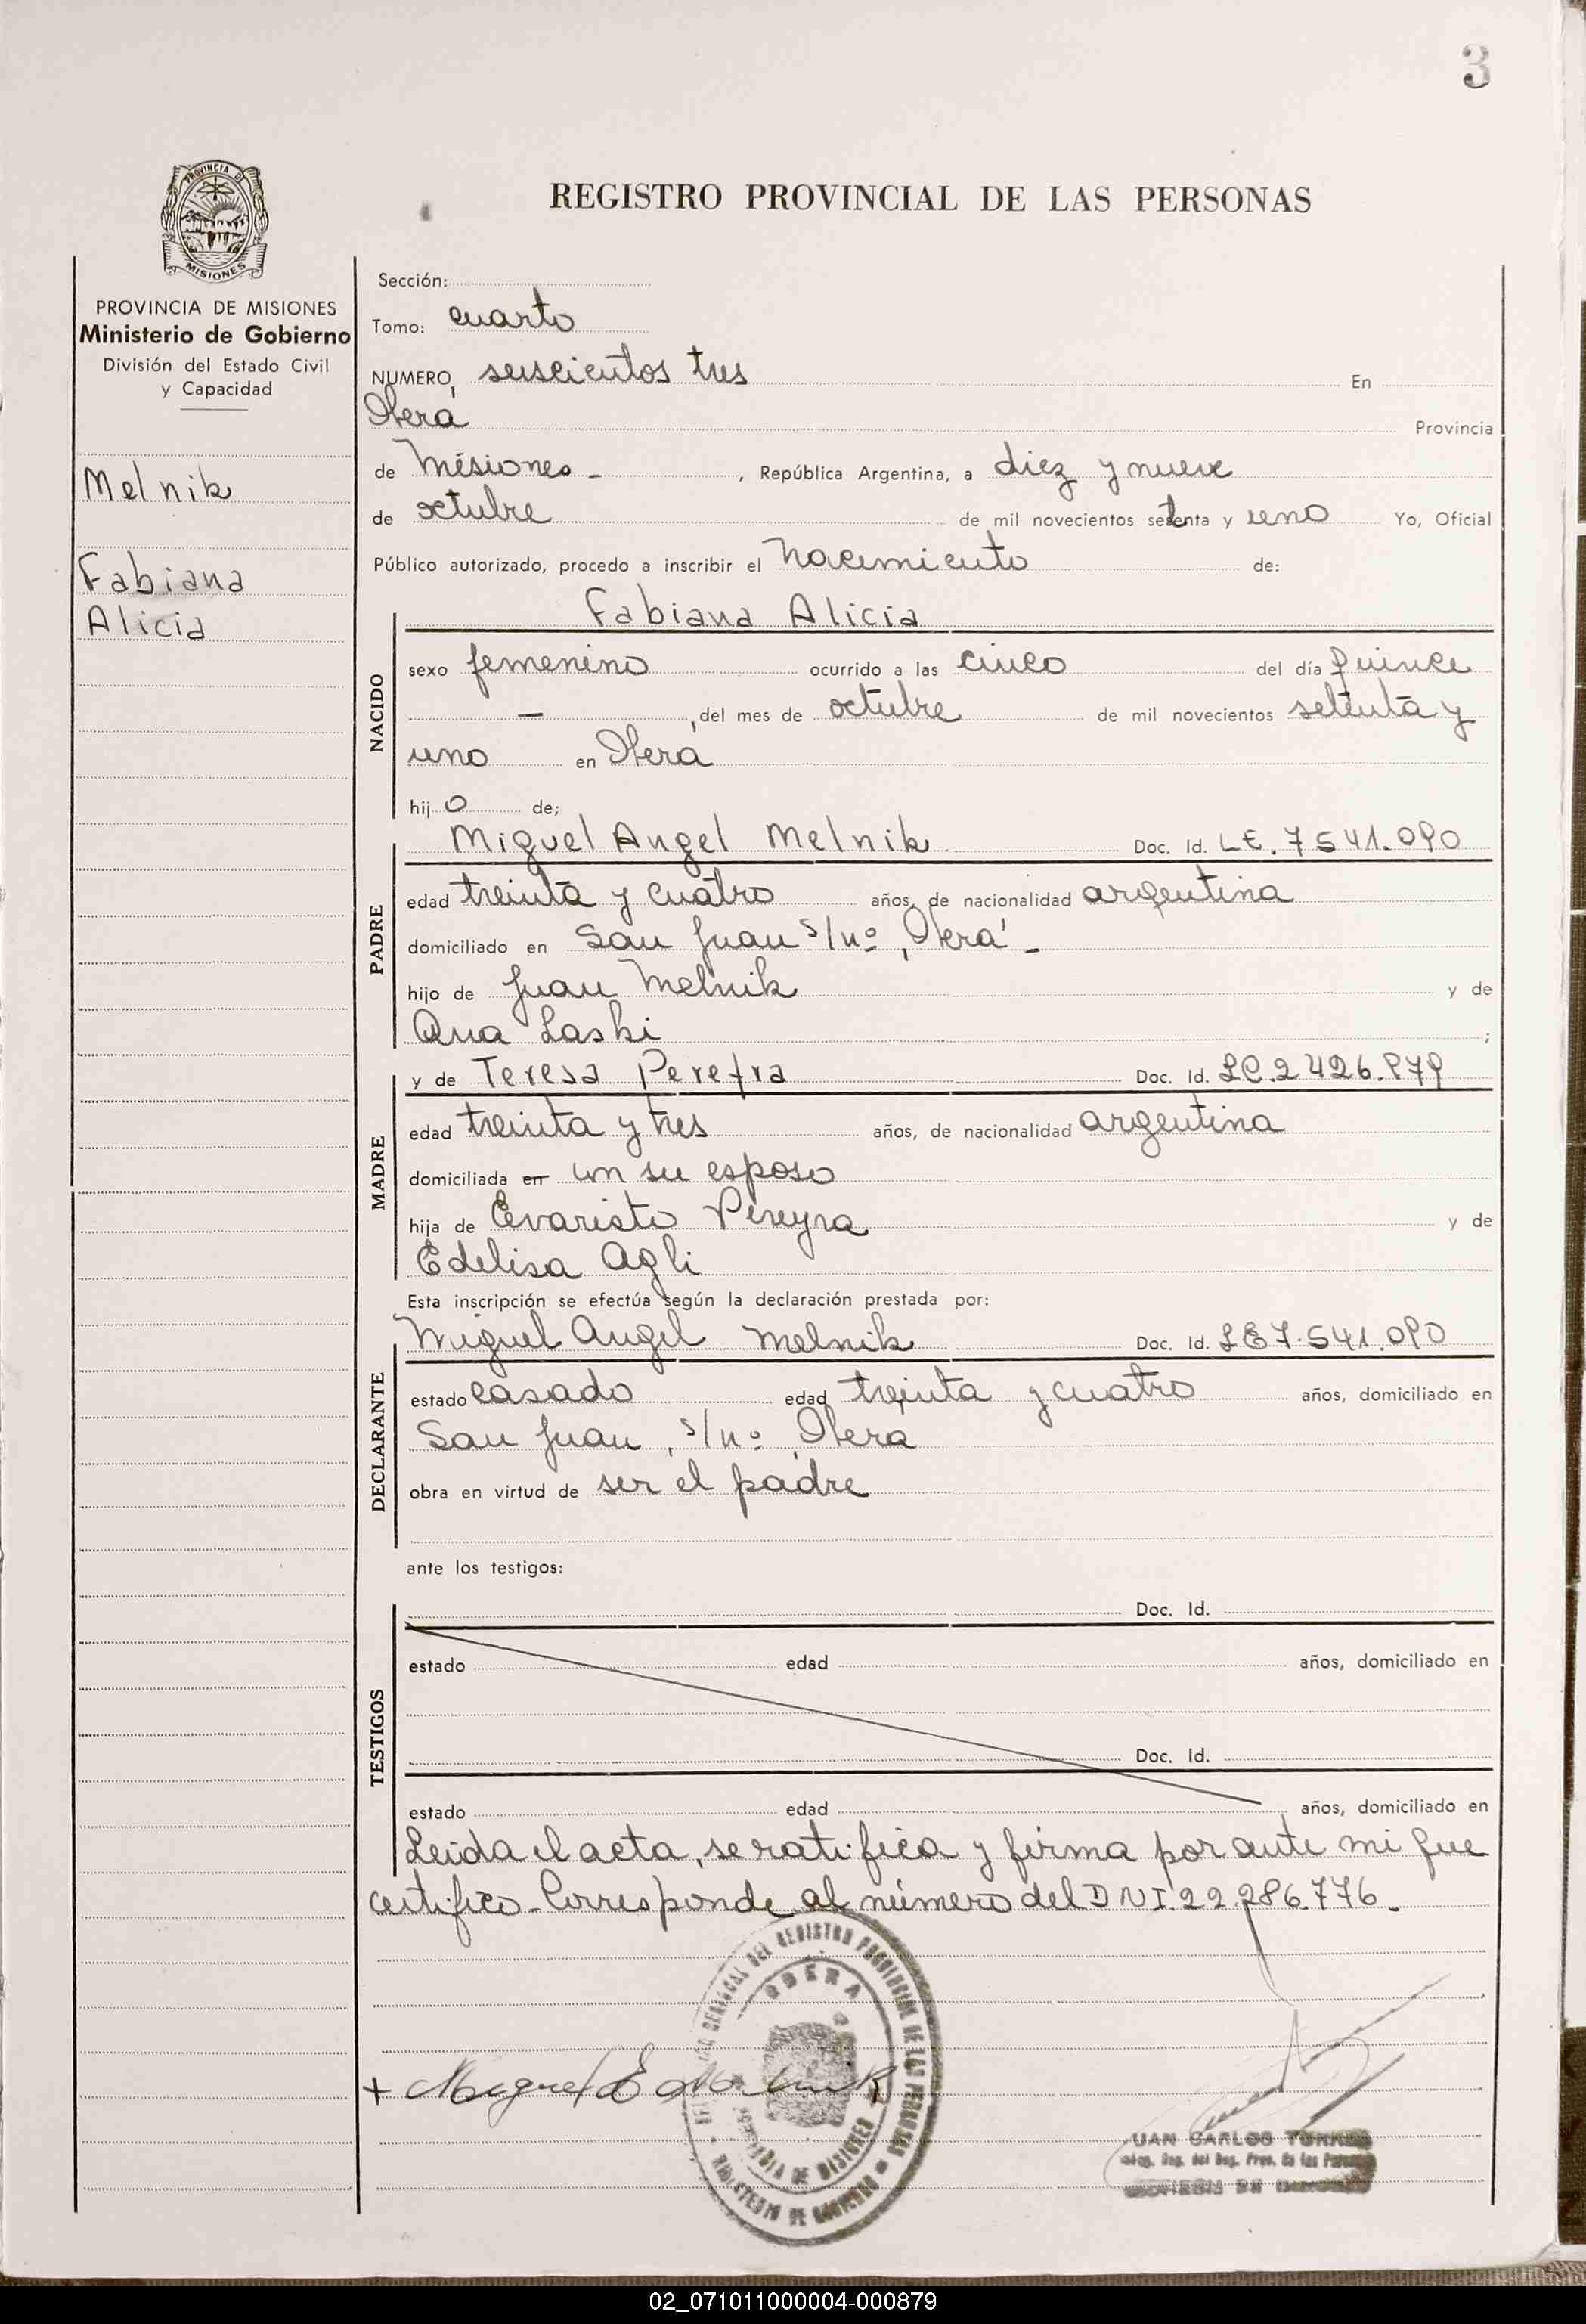 3
PROVINCIA DE
MISIONES
REGISTRO PROVINCIAL DE LAS PERSONAS
PROVINCIA DE MISIONES
Ministerio de Gobierno
División del Estado Civil
y Capacidad
Melnik
Fabiana
Alicia
Sección:
Tomo: cuarto
NUMERO, seiscientos tres En
Oberá Provincia
de Misiones - , República Argentina, a diez y nueve
de octubre de mil novecientos setenta y uno Yo, Oficial
Público autorizado, procedo a inscribir el nacimiento de:
Fabiana Alicia
NACIDO
sexo femenino ocurrido a las cinco del día quince
- , del mes de octubre de mil novecientos setenta y
uno en Oberá
hij o de;
Miguel Angel Melnik Doc. Id. LE. 7541.090
PADRE
edad treinta y cuatro años, de nacionalidad argentina
domiciliado en San Juan s/nº, Oberá -
hijo de Juan Melnik y de
Ana Laski ;
y de Teresa Pereyra Doc. Id. LC. 2426.979
MADRE
edad treinta y tres años, de nacionalidad argentina
domiciliada en con su esposo
hija de Evaristo Pereyra y de
Edelisa Agli
Esta inscripción se efectúa según la declaración prestada por:
Miguel Angel Melnik Doc. Id. LE 7.541.090
DECLARANTE
estado casado edad treinta y cuatro años, domiciliado en
San Juan, s/nº, Oberá
obra en virtud de ser el padre
ante los testigos:
Doc. Id.
TESTIGOS
estado edad años, domiciliado en
Doc. Id.
estado edad años, domiciliado en
Leida el acta, se ratifica y firma por ante mi que
certifico. Corresponde al número del DNI. 22.286.776.
OBERA
MINISTERIO DE GOBIERNO
JUAN CARLOS TORRES
02_071011000004-000879